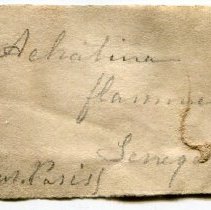 Achatina
flammea
Senega
Paris